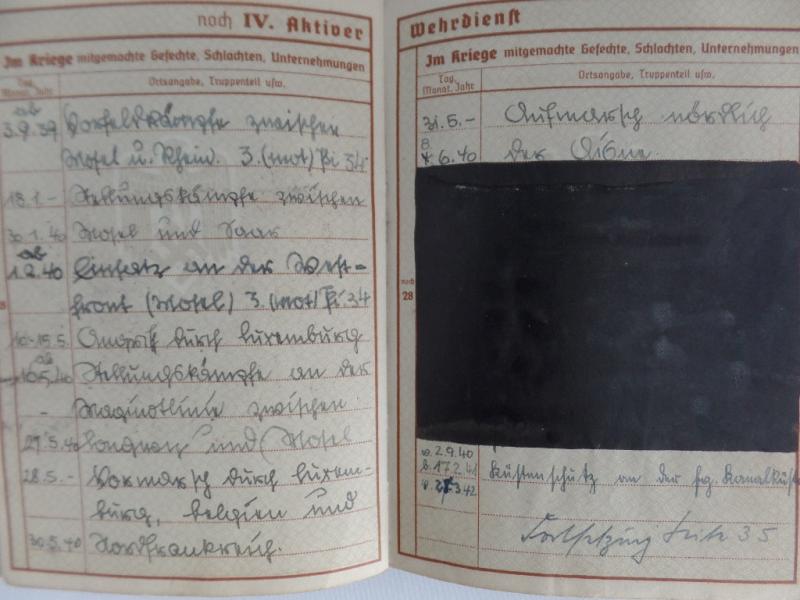 noch IV. Aktiver
Im Kriege mitgemachte Gefechte, Schlachten, Unternehmungen
Tag, Monat, Jahr
Ortsangabe, Truppenteil usw.
ab
3.9.39 Vorfeldkämpfe zwischen
Mosel u. Rhein. 3.(mot) Pi 34
18.1.- Stellungskämpfe zwischen
30.1.40 Mosel und Saar
ab
1.2.40 Einsatz an der West-
front (Mosel) 3.(mot) Pi 34
10.-15.5. Angriff durch Luxemburg
ab
10.5.40 Stellungskämpfe an der
- Maginotlinie zwischen
27.5.40 Longwy und Mosel
28.5.- Vormarsch durch Luxem-
burg, Belgien und
30.5.40 Nordfrankreich.
Wehrdienst
Im Kriege mitgemachte Gefechte, Schlachten, Unternehmungen
Tag, Monat, Jahr
Ortsangabe, Truppenteil usw.
31.5.- Aufmarsch nördlich
8.6.40 der Aisne.
noch
28
v. 2.9.40
b. 17.2.41 Küstenschutz an der frz. Kanalküste
Fortsetzung Seite 35